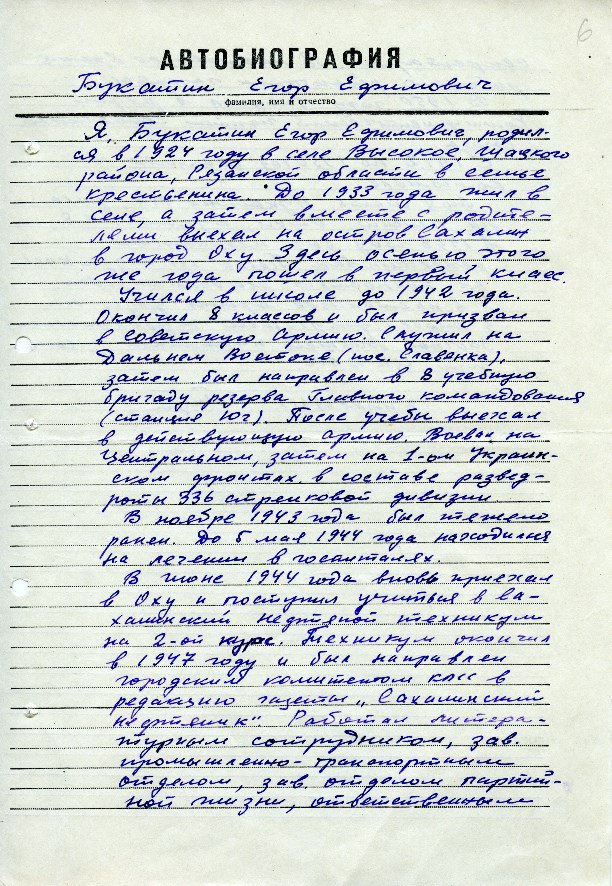 6
АВТОБИОГРАФИЯ
Букатин Егор Ефимович
фамилия, имя и отчество
Я, Букатин Егор Ефимович, родил-
ся в 1924 году в селе Высокое, Шацкого
района, Рязанской области в семье
крестьянина. До 1933 года жил в
селе, а затем вместе с родите-
лями выехал на остров Сахалин
в город Оху. Здесь осенью этого
же года пошел в первый класс.
Учился в школе до 1942 года.
Окончил 8 классов и был призван
в Советскую Армию. Служил на
Дальнем Востоке (пос. Славянка),
затем был направлен в 8 учебную
бригаду резерва Главного командования
(станция Юг). После учебы выехал
в действующую армию. Воевал на
Центральном, затем на 1-ом Украин-
ском фронтах в составе развед-
роты 336 стрелковой дивизии
В ноябре 1943 года был тяжело
ранен. До 5 мая 1944 года находился
на лечении в госпиталях.
В июне 1944 года вновь приехал
в Оху и поступил учиться в Са-
халинский нефтяной техникум
на 2-ой курс. Техникум окончил
в 1947 году и был направлен
городским комитетом КПСС в
редакцию газеты „Сахалинский
нефтяник". Работал литера-
турным сотрудником, зав.
промышленно-транспортным
отделом, зав. отделом партий-
ной жизни, ответственным